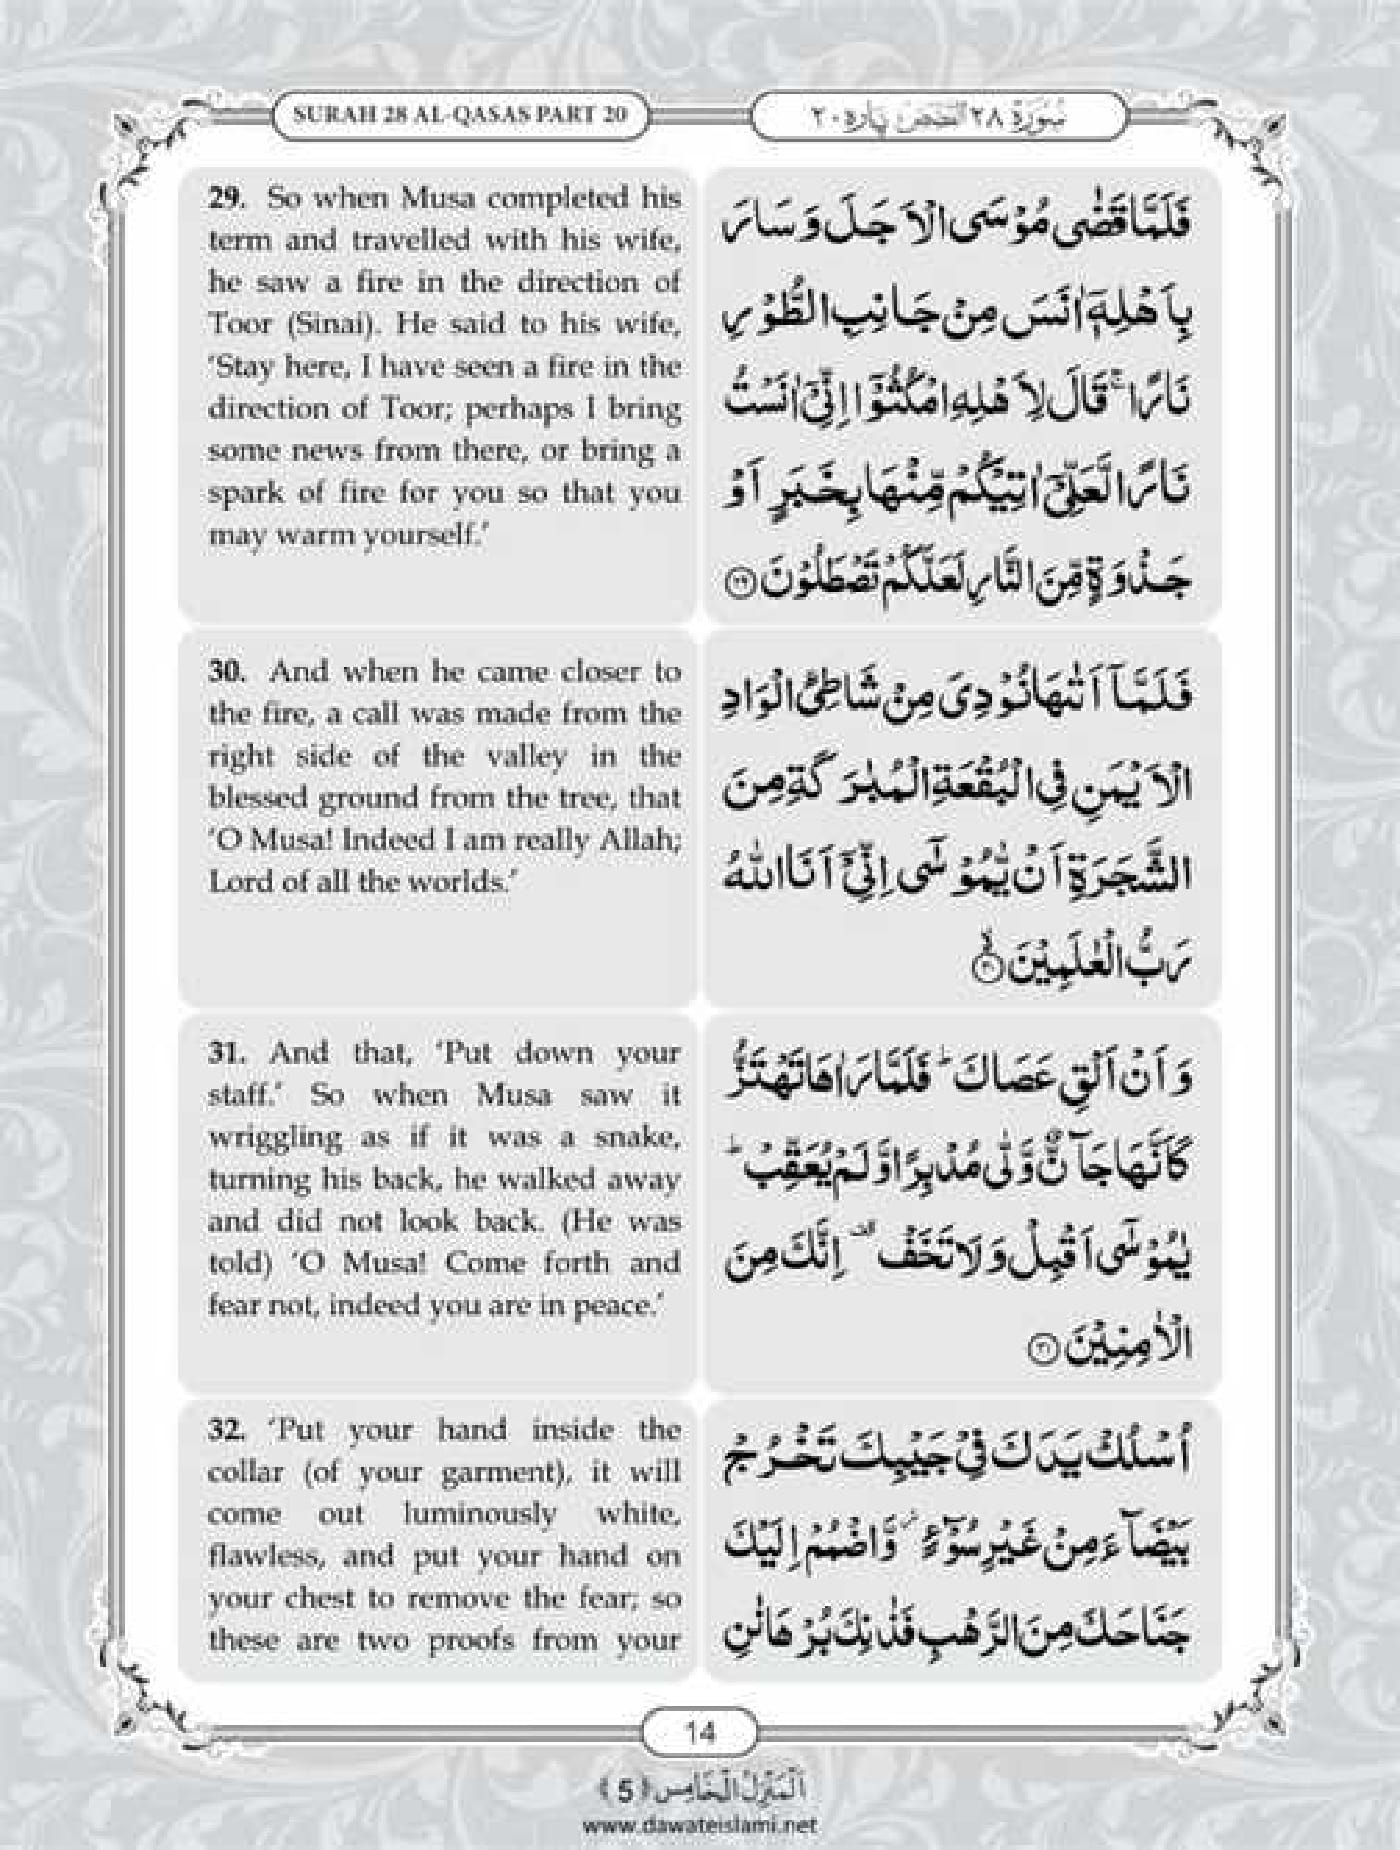 SURAH 28 AL-QASAS PART 20
سُوْرَةُ ٢٨ الْقَصَص پارہ ٢٠
29. So when Musa completed his
term and travelled with his wife,
he saw a fire in the direction of
Toor (Sinai). He said to his wife,
‘Stay here, I have seen a fire in the
direction of Toor; perhaps I bring
some news from there, or bring a
spark of fire for you so that you
may warm yourself.’
فَلَمَّا قَضٰى مُوْسَى الْاَجَلَ وَ سَارَ
بِاَهْلِهٖۤ اٰنَسَ مِنْ جَانِبِ الطُّوْرِ
نَارًا ۚ قَالَ لِاَهْلِهِ امْكُثُوْۤا اِنِّیْۤ اٰنَسْتُ
نَارًا لَّعَلِّیْۤ اٰتِیْكُمْ مِّنْهَا بِخَبَرٍ اَوْ
جَذْوَةٍ مِّنَ النَّارِ لَعَلَّكُمْ تَصْطَلُوْنَ ﴿۲۹﴾
30. And when he came closer to
the fire, a call was made from the
right side of the valley in the
blessed ground from the tree, that
‘O Musa! Indeed I am really Allah;
Lord of all the worlds.’
فَلَمَّاۤ اَتٰىهَا نُوْدِیَ مِنْ شَاطِئِ الْوَادِ
الْاَیْمَنِ فِی الْبُقْعَةِ الْمُبٰرَكَةِ مِنَ
الشَّجَرَةِ اَنْ یّٰمُوْسٰۤى اِنِّیْۤ اَنَا اللّٰهُ
رَبُّ الْعٰلَمِیْنَ ﴿۳۰﴾
31. And that, ‘Put down your
staff.’ So when Musa saw it
wriggling as if it was a snake,
turning his back, he walked away
and did not look back. (He was
told) ‘O Musa! Come forth and
fear not, indeed you are in peace.’
وَ اَنْ اَلْقِ عَصَاكَ ؕ فَلَمَّا رَاٰهَا تَهْتَزُّ
كَاَنَّهَا جَآنٌّ وَّلّٰى مُدْبِرًا وَّ لَمْ یُعَقِّبْ ؕ
یٰمُوْسٰۤى اَقْبِلْ وَ لَا تَخَفْ ۫ اِنَّكَ مِنَ
الْاٰمِنِیْنَ ﴿۳۱﴾
32. ‘Put your hand inside the
collar (of your garment), it will
come out luminously white,
flawless, and put your hand on
your chest to remove the fear; so
these are two proofs from your
اُسْلُكْ یَدَكَ فِیْ جَیْبِكَ تَخْرُجْ
بَیْضَآءَ مِنْ غَیْرِ سُوْٓءٍ ۫ وَّ اضْمُمْ اِلَیْكَ
جَنَاحَكَ مِنَ الرَّهْبِ فَذٰنِكَ بُرْهَانٰنِ
14
اَلْمَنْزِلُ الْخَامِس ﴿5﴾
www.dawateislami.net